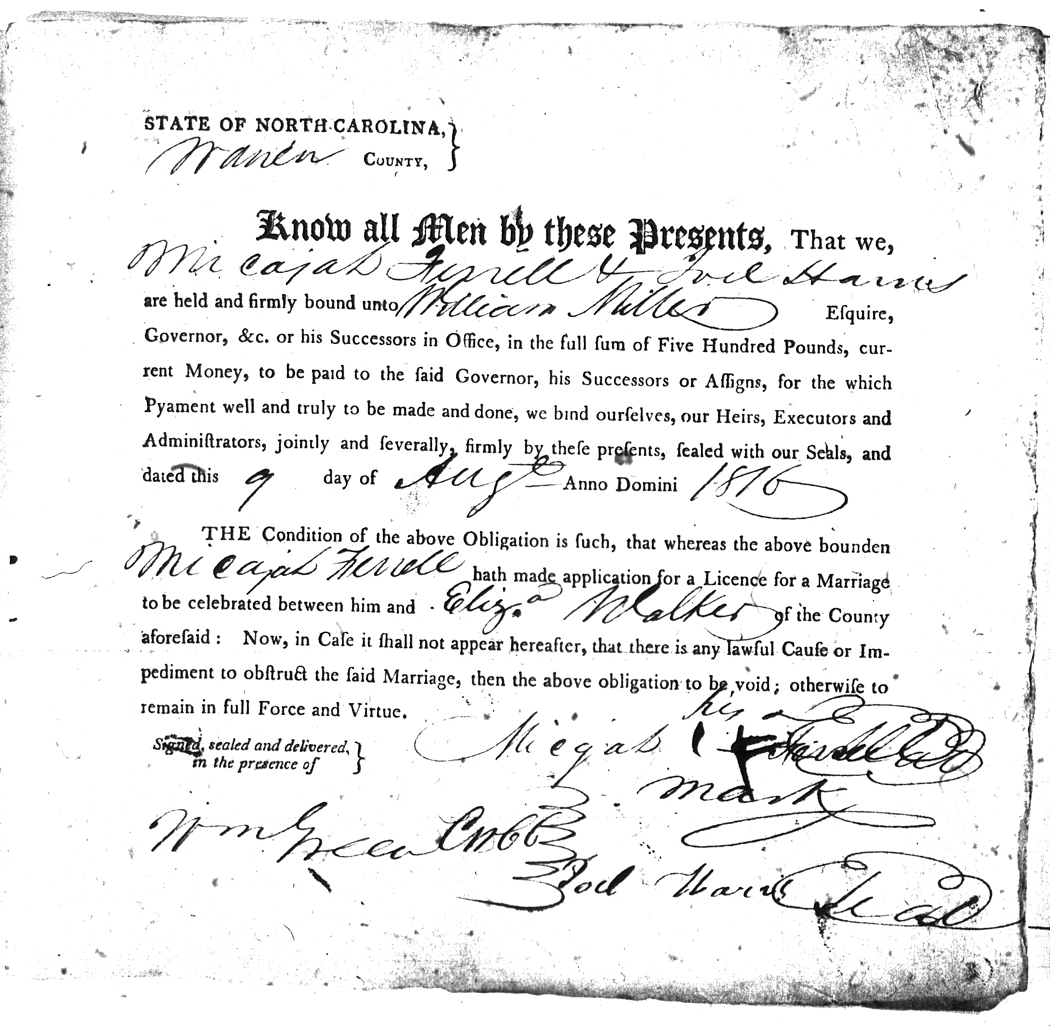 STATE OF NORTH-CAROLINA,
Warren COUNTY,
Know all Men by these Presents, That we,
Micajah Ferrell & Joel Harris
are held and firmly bound unto William Miller Eſquire,
Governor, &c. or his Successors in Office, in the full ſum of Five Hundred Pounds, cur-
rent Money, to be paid to the ſaid Governor, his Successors or Aſſigns, for the which
Pyament well and truly to be made and done, we bind ourſelves, our Heirs, Executors and
Adminiſtrators, jointly and ſeverally, firmly by theſe preſents, ſealed with our Seals, and
dated this 9 day of Augt Anno Domini 1816
THE Condition of the above Obligation is ſuch, that whereas the above bounden
Micajah Ferrell hath made application for a Licence for a Marriage
to be celebrated between him and Eliza Walker of the County
aforeſaid : Now, in Caſe it ſhall not appear hereafter, that there is any lawful Cauſe or Im-
pediment to obſtruct the ſaid Marriage, then the above obligation to be void ; otherwiſe to
remain in full Force and Virtue.
his
Signed, sealed and delivered,
in the presence of
Micajah Ferrell Seal
mark
Wm Green
Joel Harris Seal